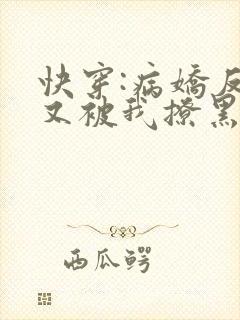 快穿:病娇反
又被我撩黑
西瓜鳄